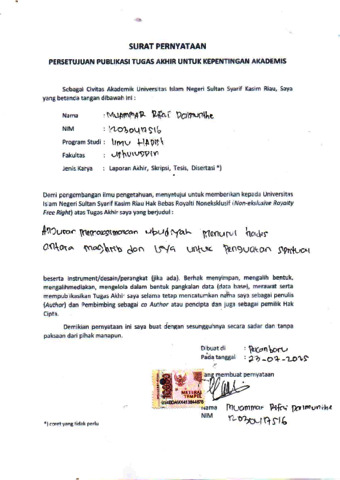 SURAT PERNYATAAN
PERSETUJUAN PUBLIKASI TUGAS AKHIR UNTUK KEPENTINGAN AKADEMIS
Sebagai Civitas Akademik Universitas Islam Negeri Sultan Syarif Kasim Riau, Saya
yang betanda tangan dibawah ini :
Nama : Muammar Rfai Dalimunthe
NIM : 12030417516
Program Studi : Ilmu Hadits
Fakultas : Ushuluddin
Jenis Karya : Laporan Akhir, Skripsi, Tesis, Disertasi *)
Demi pengembangan ilmu pengetahuan, menyetujui untuk memberikan kepada Universitas
Islam Negeri Sultan Syarif Kasim Riau Hak Bebas Royalti Noneksklusif (Non-ekslusive Royalty
Free Right) atos Tugas Akhir saya yang berjudul :
Anjuran ubudiyah menurut hadis
antara maghrib dan isya untuk Penguatan Spiritual
beserta instrumen/desain/perangkat (jika ada). Berhak menyimpan, mengalih bentuk,
mengalihmediakan, mengelola dalam bentuk pangkalan data (data base), merawat serta
mempublikasikan Tugas Akhir saya selama tetap mencatumkan nama saya sebagai penulis
(Author) dan Pembimbing sebagai co Author atau pencipta dan juga sebagai pemilik Hak
Cipta.
Demikian pernyataan ini saya buat dengan sesungguhnya secara sadar dan tanpa
paksaan dari pihak manapun.
Dibuat di : Pekanbaru
Pada tanggal : 23-07-2025
ang membuat pernyataan
METERAI
TEMPEL
Nama Muammar Rfai Dalimunthe
NIM 12030417516
*) coret yang tidak perlu